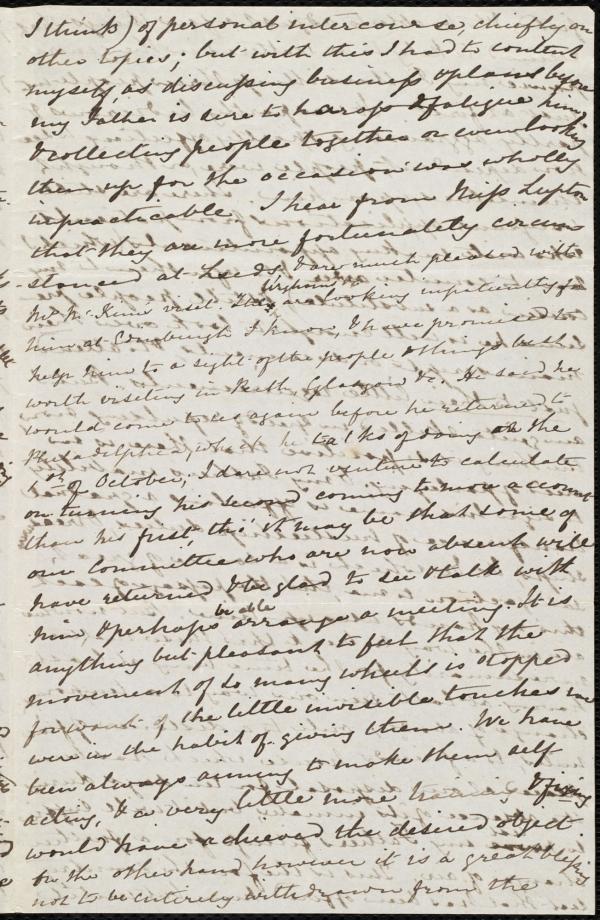 I think) of personal intercourse, chiefly on
other topics; but with this I had to content
myself, as discussing business & plans before
my Father is sure to harass & fatigue him,
& collecting people together or even looking
them up for the occasion was wholly
impracticable. I hear from Miss Lupton
that they are more fortunately circum
stanced at Leeds, & are much pleased with
Mr. Mc.Kim's visit. The Wighams are looking impatiently for
him at Edinburgh I know, & have promised to
help him to a sight of the people & things best
worth visiting in Perth, Glasgow &c. He said he
would come to us again before he returned to
Philadelphia, which he talks of doing on the
1st of October; I dare not venture to calculate
on turning his second coming to more account
than his first, tho' it may be that some of
our Committee who are now absent will
have returned & be glad to see & talk with
him, & perhaps be able arrange a meeting. It is
anything but pleasant to feel that the
movement of so many wheels is stopped
for want of the little invisible touches we
were in the habit of giving them. We have
been always aiming to make them self
acting, & a very little more & fixing
would have achieved the desired object.
On the other hand however it is a great blessing
not to be entirely withdrawn from the